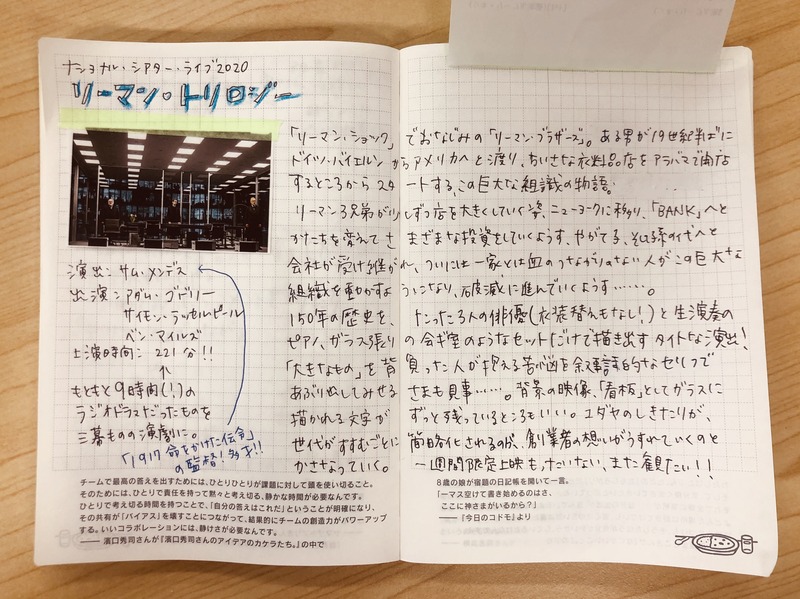 ナショナル・シアター・ライブ2020
リーマン・トリロジー
演出:サム・メンデス
出演:アダム・ゴドリー
サイモン・ラッセルビール
ベン・マイルズ
上演時間:221分!!
↑
もともと9時間(!)の
ラジオドラマだったものを
三幕ものの演劇に。
「1917 命をかけた伝令」
の監督!多才!!
「リーマン・ショック」でおなじみの「リーマン・ブラザーズ」。ある男が19世紀半ばに
ドイツ・バイエルンからアメリカへと渡り、ちいさな衣料品店をアラバマで開店
するところからスタートする、この巨大な組織の物語。
リーマン3兄弟が少しずつ店を大きくしていく姿、ニューヨークに移り、「BANK」へと
かたちを変えてさまざまな投資をしていくようす、やがて子、そして孫の代へと
会社が受け継がれ、ついには一家とは血のつながりのない人がこの巨大な
組織を動かすようになり、破滅に進んでいくようす……。
150年の歴史を、たった3人の俳優(衣装替えもなし!)と生演奏の
ピアノ、ガラス張りの会議室のようなセットだけで描き出すタイトな演出!
「大きなもの」を背負った人が抱える苦悩を叙事詩的なセリフで
あぶり出してみせるさまも見事……。背景の映像、「看板」としてガラスに
描かれる文字がずっと残っているところもいい。ユダヤのしきたりが、
世代がすすむごとに簡略化されるのが、創業者の想いがうすれていくのと
かさなっていく。一週間限定上映もったいない、また観たい!!
チームで最高の答えを出すためには、ひとりひとりが課題に対して頭を使い切ること。
そのためには、ひとりで責任を持って黙々と考え切る、静かな時間が必要なんです。
ひとりで考え切る時間を持つことで、「自分の答えはこれだ」ということが明確になり、
その共有が「バイアス」を壊すことにつながって、結果的にチームの創造力がパワーアップ
する。いいコラボレーションには、静けさが必要なんです。
―― 濱口秀司さんが『濱口秀司さんのアイデアのカケラたち。』の中で
8歳の娘が宿題の日記帳を開いて一言。
「一マス空けて書き始めるのはさ、
ここに神さまがいるから?」
――『今日のコドモ』より